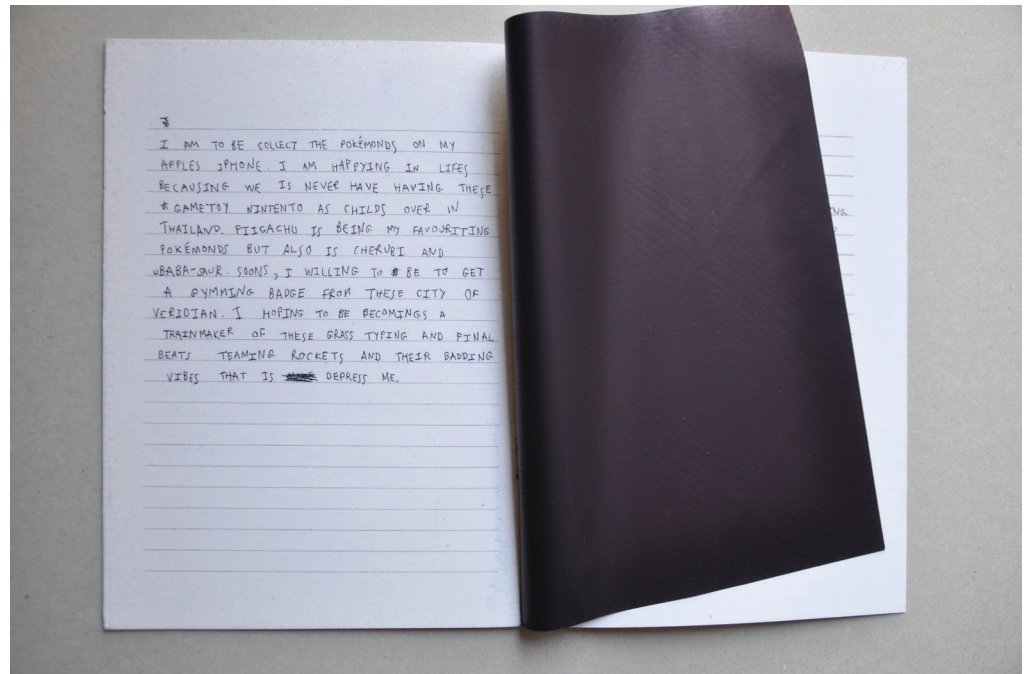 I AM TO BE COLLECT THE POKÉMONDS ON MY
APPLES IPHONE. I AM HAPPYING IN LIFES
BECAUSING WE IS NEVER HAVE HAVING THESE
GAMETOY NINTENTO AS CHILDS OVER IN
THAILAND. PIIGACHU IS BEING MY FAVOURITING
POKÉMONDS BUT ALSO IS CHERUBI AND
UBABA-SAUR. SOONS, I WILLING TO BE TO GET
A GYMMING BADGE FROM THESE CITY OF
VERIDIAN. I HOPING TO BE BECOMINGS A
TRAINMAKER OF THESE GRASS TYPING AND FINAL
BEATS TEAMING ROCKETS AND THEIR BADDING
VIBES THAT IS DEPRESS ME.